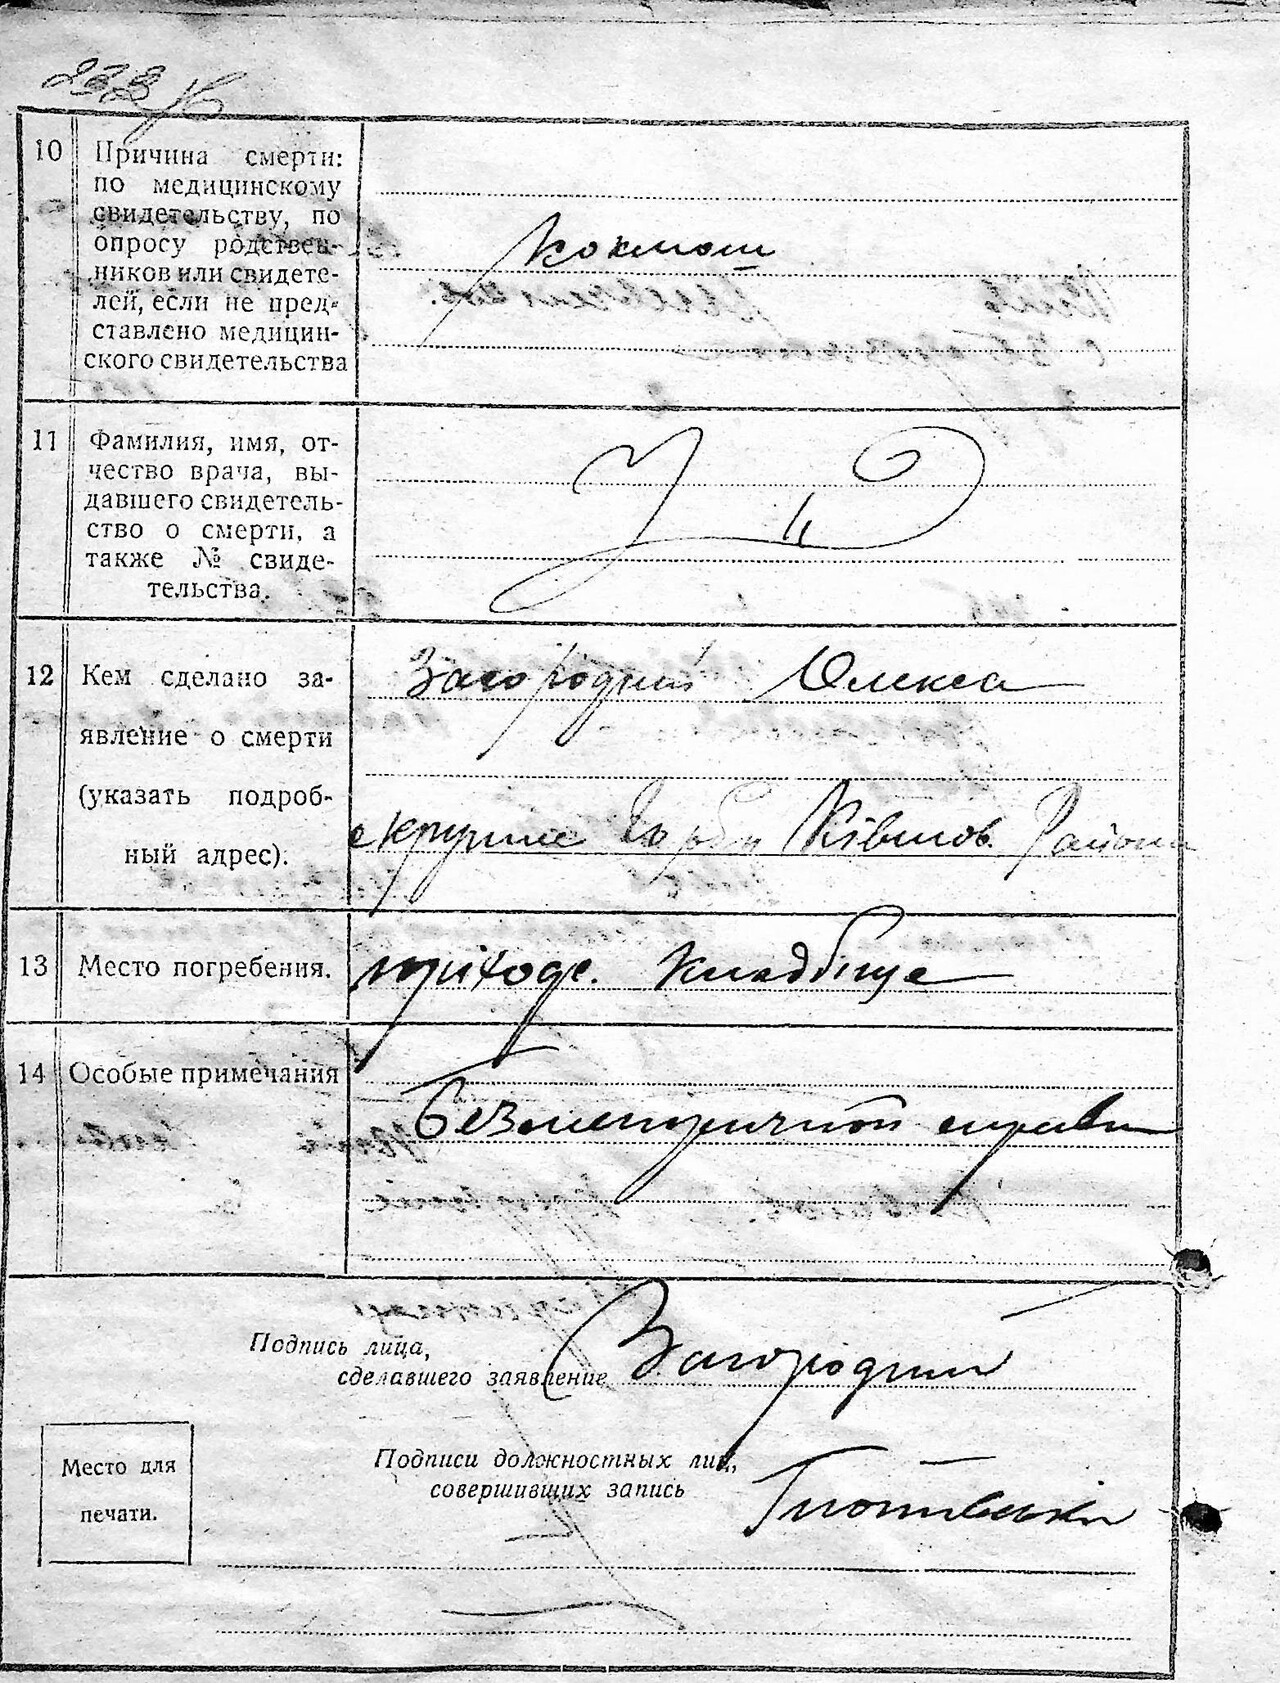 10
Причина смерти:
по медицинскому
свидетельству, по
опросу родствен-
ников или свидете-
лей, если не пред-
ставлено медицин-
ского свидетельства
Коклюш
11
Фамилия, имя, от-
чество врача, вы-
давшего свидетель-
ство о смерти, а
также № свиде-
тельства.
12
Кем сделано за-
явление о смерти
(указать подроб-
ный адрес).
Загородний Олекса
Района
13
Место погребения.
приходс. Кладбіще
14
Особые примечания
Подпись лица,
сделавшего заявление
Загородний
Подписи должностных лиц,
совершивших запись
Место для
печати.